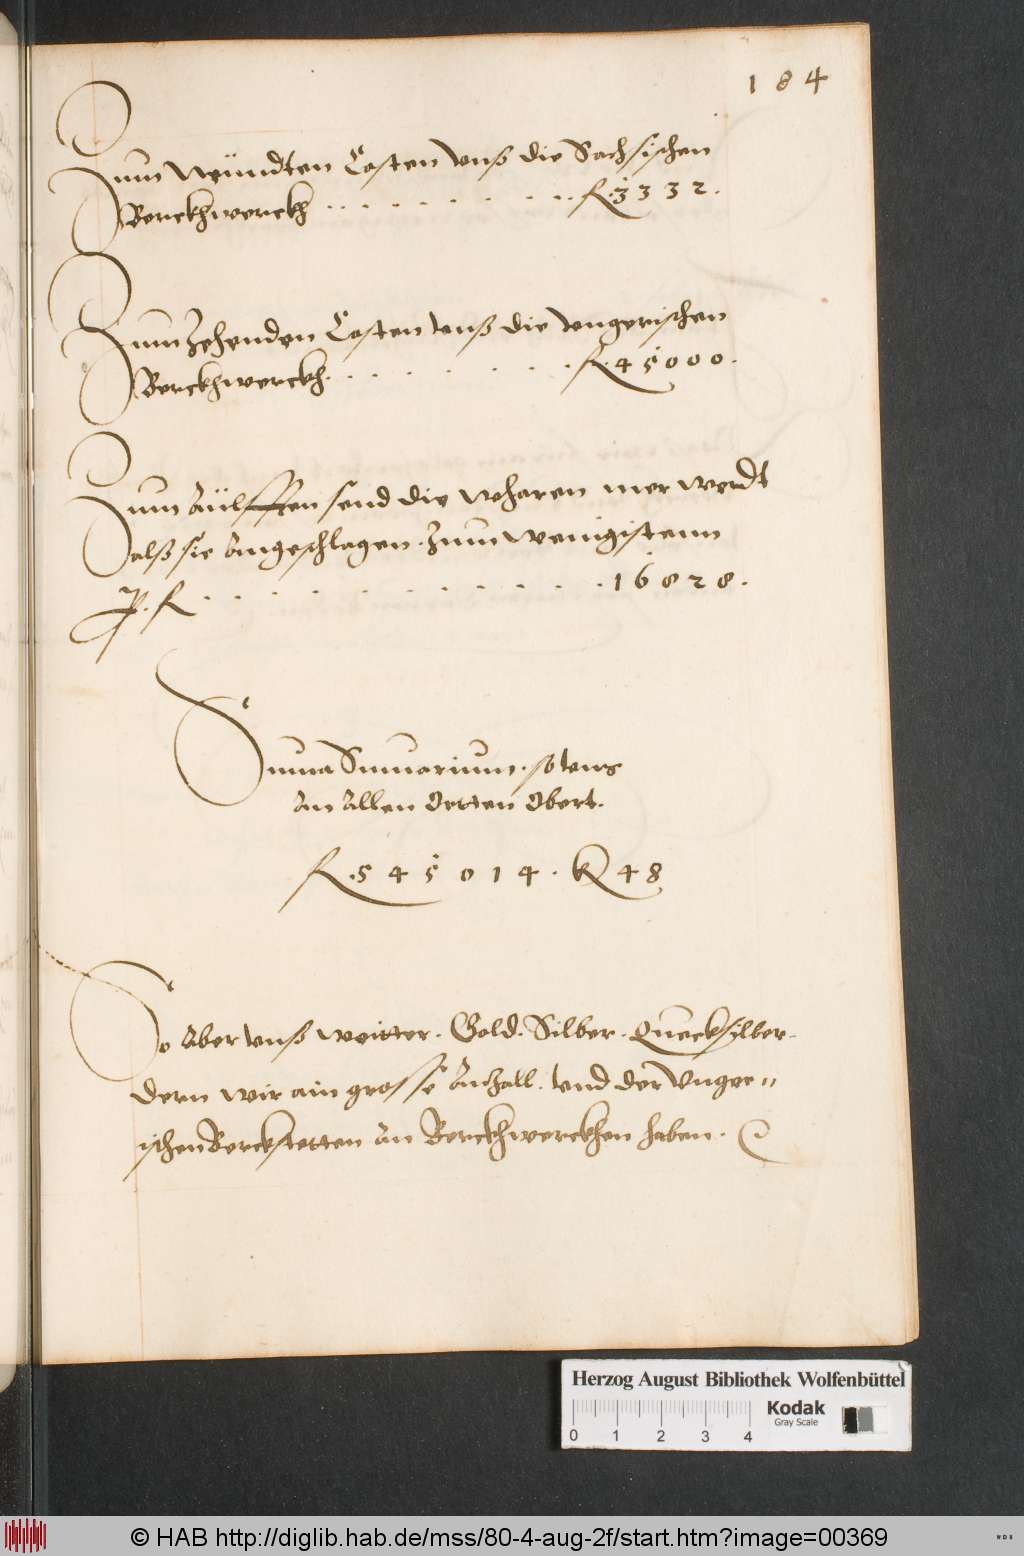 184
Zum Neündten Costen vnß die Sachsischen
Berckhwerckh . . . . . . . . . fl. 3332.
Zum Zehenden Costen vnß die Vngerischen
Berckhwerckh . . . . . . . . . fl. 45000.
Zum Ailfften send die Wharen mer werdt
alß sie Angeschlagen. Zum Wenigistenn
p. fl . . . . . . . . . . . 16828.
Suma Sumarium. so vns
An Allen Ortten Obert.
fl. 545014. K 48
So Aber vnß weitter. Gold. Silber. Quecksylber.
dern wir ain grosse Anzall. vnd der Vnger〃
ischen Berckstetten An Berckhwerckhen haben.
Herzog August Bibliothek Wolfenbüttel
Kodak
Gray Scale
0 1 2 3 4
© HAB http://diglib.hab.de/mss/80-4-aug-2f/start.htm?image=00369